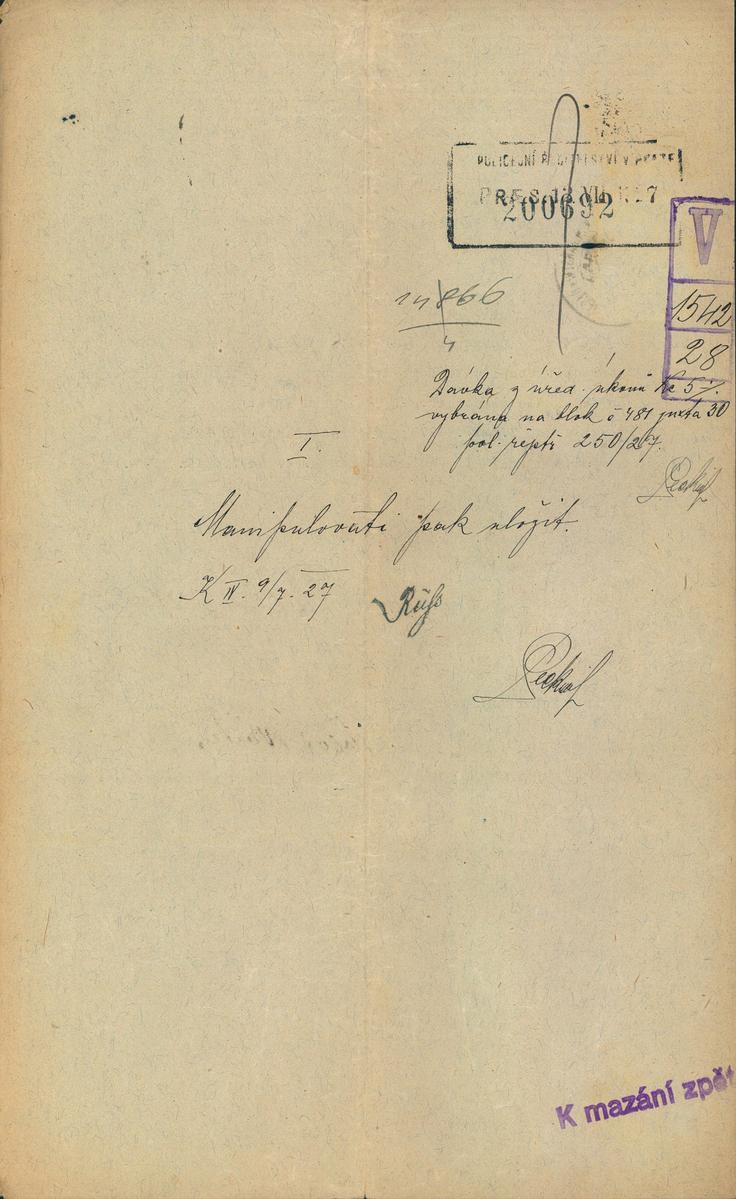 POLICEJNÍ ŘEDITELSTVÍ V PRAZE
PRÆS. 13. VII. 1927
200692
V
1542
28
14866
4
Dávka z úřed. úkonu Kč 5·/.
vybrána na blok č 481 juxta 30
pol. rejstř 250/27.
I.
Manipulovati pak uložit.
K IV. 9/7. 27
K mazání zpět